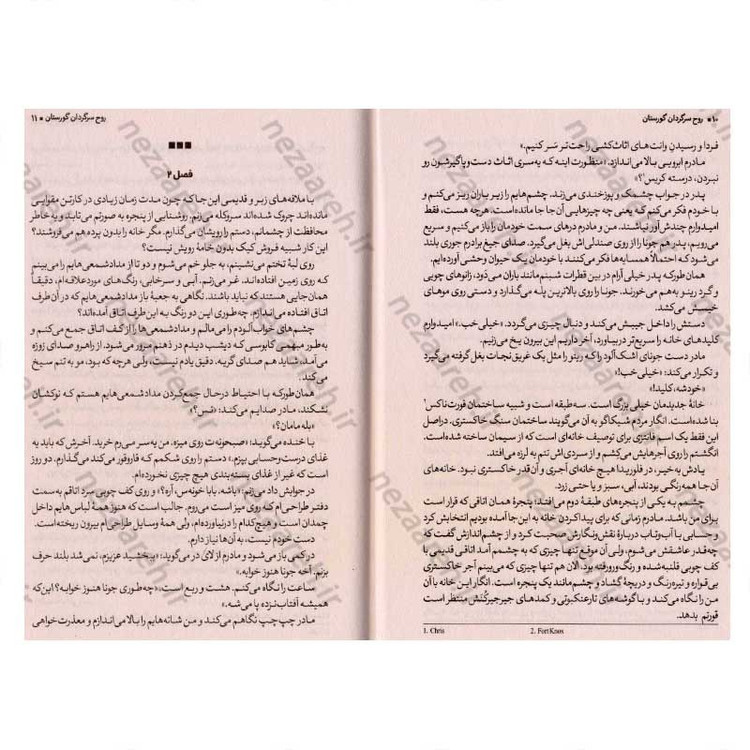 ۱۰ ■ روح سرگردان گورستان
فردا و رسیدنِ وانت‌های اثاث‌کشی راحت‌تر سَر کنیم.»
مادرم ابرویی بالا می‌اندازد. «منظورت اینه که یه‌سری اثاث دست‌وپاگیرشون رو
نبردن، درسته کریس؟¹»
پدر در جواب چشمک و پوزخندی می‌زند. چشم‌هایم را زیر باران ریز می‌کنم و
با خودم فکر می‌کنم که یعنی چه چیزهایی آن‌جا جا مانده است. هرچه هست، فقط
امیدوارم چندش‌آور نباشند. من و مادر درهای سمت خودمان را باز می‌کنیم و سریع
می‌رویم. پدر هم جونا را از روی صندلی‌اش بغل می‌گیرد. صدای جیغ برادرم جوری بلند
می‌شود که احتمالاً همسایه‌ها فکر می‌کنند با خودمان یک حیوان وحشی آورده‌ایم.
همان‌طور که پدر خیلی آرام در بین قطرات شبنم‌مانند باران می‌دود، زانوهای چوبی
و گرد رینو به‌هم می‌خورند. جونا را روی بالاترین پله می‌گذارد و دستی روی موهای
خیسش می‌کشد.
دستش را داخل جیبش می‌کند و دنبال چیزی می‌گردد. «خیلی خب.» امیدوارم
کلیدهای خانه را سریع‌تر دربیاورد، آخر داریم این بیرون یخ می‌زنیم.
مادر دست جونای اشک‌آلود را که رینو را مثل یک غریق‌نجات بغل گرفته می‌گیرد
و تکرار می‌کند: «خیلی خب!»
«خودشه، کلید!»
خانهٔ جدیدمان خیلی بزرگ است. سه‌طبقه است و شبیه ساختمان فورت‌ناکس²
بنا شده‌است. انگار مردم شیکاگو به آن می‌گویند ساختمان سنگ خاکستری. دراصل
این فقط یک اسم فانتزی برای توصیف خانه‌ای است که از سیمان ساخته شده‌است.
انگشتم را روی آجرهایش می‌کشم و از سردی‌اش تنم به لرزه می‌افتد.
یادش به‌خیر، در فلوریدا هیچ خانه‌ای آجری و آن‌قدر خاکستری نبود. خانه‌های
آن‌جا همه‌رنگی بودند، آبی، سبز و یا حتی زرد.
چشمم به یکی از پنجره‌های طبقهٔ دوم می‌افتد؛ پنجرهٔ همان اتاقی که قرار است
برای من باشد. مادرم زمانی که برای پیداکردن خانه به این‌جا آمده بودیم انتخابش کرد
و حسابی با آب‌وتاب دربارهٔ نقش‌ونگارش صحبت کرد و از چشم‌اندازش گفت که
چه‌قدر عاشقش می‌شوم، ولی آن موقع تنها چیزی که به چشمم آمد اتاقی قدیمی با
کف چوبی قلنبه‌شده و رنگ‌وروفته بود. الان هم تنها چیزی که می‌بینم آجر خاکستری
بی‌قواره و تیره‌رنگ و دریچه‌ای گشاد و چشم‌مانند یک پنجره است. انگار این خانه با آن
من را نگاه می‌کند و با گوشه‌های تارعنکبوتی و کمدهای جیرجیرکُنش منتظر است
قورتم بدهد.
1. Chris
2. Fort Knox
روح سرگردان گورستان ■ ۱۱
■■■
فصل ۲
با ملافه‌های زبر و قدیمی این‌جا که چون مدت زمان زیادی در کارتن مقوایی
مانده‌اند چروک شده‌اند سروکله می‌زنم. روشنایی از پنجره به صورتم می‌تابد و به خاطر
محافظت از چشمانم، دستم را رویشان می‌گذارم. مگر خانه را بدون پرده هم می‌فروشند؟
این کار شبیه فروش کیک بدون خامهٔ رویش نیست؟
روی لبهٔ تختم می‌نشینم، به جلو خم می‌شوم و دو تا از مدادشمعی‌هایم را می‌بینم
که روی زمین افتاده‌اند. غر می‌زنم. آبی و سرخابی، رنگ‌های موردعلاقه‌ام، دقیقاً
همان‌جایی هستند که نباید باشند. نگاهی به جعبهٔ باز مدادشمعی‌هایم که در آن طرف
اتاق افتاده می‌اندازم. چه‌طوری این دو رنگ به این طرف اتاق آمده‌اند؟
چشم‌های خواب‌آلودم را می‌مالم و مدادشمعی‌ها را از کف اتاق جمع می‌کنم و
به‌طور مبهمی کابوسی که دیشب دیدم در ذهنم مرور می‌شود. از راهرو صدای زوزه
می‌آمد، شاید هم صدای گریه. دقیق یادم نیست، ولی هرچه که بود، مو به تنم سیخ
می‌کند.
همان‌طور که با احتیاط درحال جمع‌کردن مدادشمعی‌هایم هستم که نوکشان
نشکند، مادر صدایم می‌کند: «تس؟»
«بله مامان؟»
با خنده می‌گوید: «صبحونه‌ت روی میزه. من یه‌سر می‌رم خرید. آخرش که باید یه
غذای درست‌وحسابی بپزم.» دستم را روی شکمم که قاروقور می‌کند می‌گذارم. دو روز
است که غیر از غذای بسته‌بندی هیچ چیزی نخورده‌ام.
در جوابش داد می‌زنم: «باشه. بابا خونه‌س، آره؟» و روی کف چوبی سرد اتاقم به‌سمت
دفتر طراحی‌ام که روی میز است می‌روم. جالب است که هنوز همهٔ لباس‌هایم داخل
چمدان است و هیچ‌کدام را درنیاورده‌ام، ولی همهٔ وسایل طراحی‌ام بیرون ریخته‌است.
دست خودم نیست، به آن‌ها نیاز دارم.
در کمی باز می‌شود و مادرم از لای در می‌گوید: «ببخشید عزیزم، نمی‌شد بلند حرف
بزنم. آخه جونا هنوز خوابه.»
ساعت را نگاه می‌کنم. هشت و ربع است. «چه‌طوری جونا هنوز خوابه؟ این که
همیشه آفتاب‌نزده پا می‌شه.»
مادر چپ‌چپ نگاهم می‌کند و من شانه‌هایم را بالا می‌اندازم و معذرت‌خواهی
nezaareh.ir